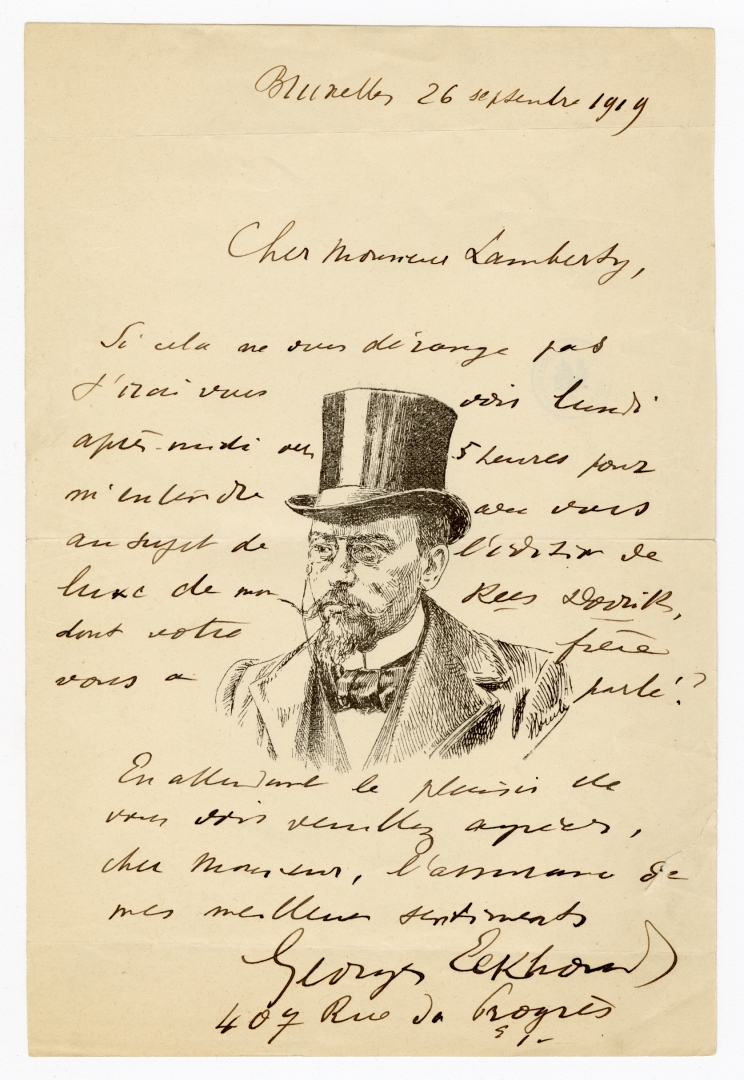 Bruxelles 26 septembre 1919
Cher Monsieur Lamberty,
Si cela ne vous dérange pas
j'irai vous voir lundi
après-midi vers 5 heures pour
m'entendre avec vous
au sujet de l'édition de
luxe de mon Kees Doorik,
dont votre frère
vous a parlé?
En attendant le plaisir de
vous voir veuillez agréer,
cher Monsieur, l'assurance de
mes meilleurs sentiments
Georges Eekhoud
407 Rue du Progrès